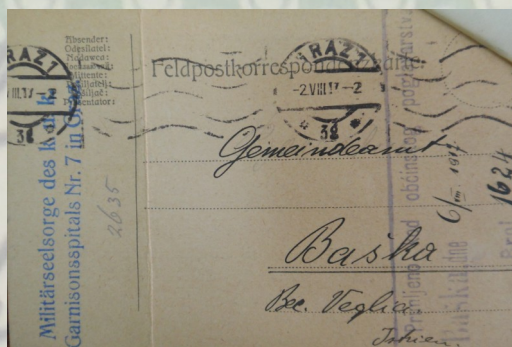 Absender:
Odesílatel:
Feldpostkorrespondenzkarte
GRAZ 7
-2.VIII.17-2
* 3g *
RAZ 7
VIII.17-2
3g
Militärseelsorge des k. u. k.
Garnisonsspitals Nr. 7 in Graz
2635
Gemeindeamt
Baška
Bec. Veglia.
Istrien.
Primljeno od občinskog poglavarstva
Baška dne
6/VIII 1917
1624